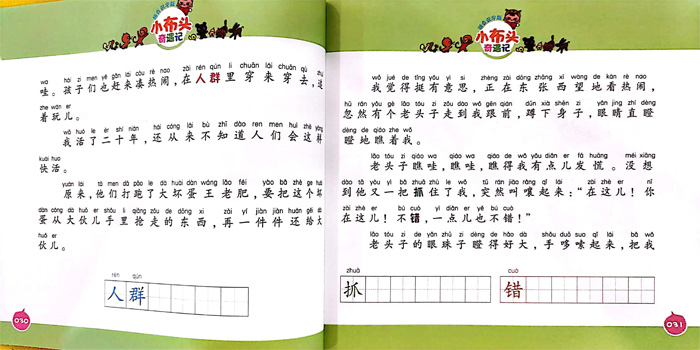 小布头
奇遇记
wa hái zi men yě gǎn lái còu rè nao zài rén qún li chuān lái chuān qù zhuī
哇。孩子们也赶来凑热闹，在人群里穿来穿去，追
zhe wán er
着玩儿。
wǒ huó le èr shí nián hái cóng lái bù zhī dào rén men huì zhè yàng
我活了二十年，还从来不知道人们会这样
kuài huo
快活。
yuán lái tā men dǎ pǎo le dà huài dàn wáng lǎo féi yào bǎ zhè ge huài
原来，他们打跑了大坏蛋王老肥，要把这个坏
dàn cóng dà huǒ er shǒu li qiǎng zǒu de dōng xi zài yí jiàn jiàn huán gěi dà
蛋从大伙儿手里抢走的东西，再一件件还给大
huǒ er
伙儿。
rén qún
人群
030
小布头
奇遇记
wǒ jué de tǐng yǒu yì si zhèng zài dōng zhāng xī wàng de kàn rè nao
我觉得挺有意思，正在东张西望地看热闹，
hū rán yǒu gè lǎo tóu zi zǒu dào wǒ gēn qián dūn xià shēn zi yǎn jing zhí dèng
忽然有个老头子走到我跟前，蹲下身子，眼睛直瞪
dèng de qiáo zhe wǒ
瞪地瞧着我。
lǎo tóu zi qiáo wa qiáo wa qiáo de wǒ yǒu diǎn er fā huāng méi xiǎng
老头子瞧哇，瞧哇，瞧得我有点儿发慌。没想
dào tā yòu yì bǎ zhuā zhù le wǒ tū rán jiào rǎng qǐ lái zài zhè er nǐ
到他又一把抓住了我，突然叫嚷起来：“在这儿！你
zài zhè er bú cuò yì diǎn er yě bú cuò
在这儿！不错，一点儿也不错！”
lǎo tóu zi de yǎn zhū zi dèng de hǎo dà shǒu duō suo qǐ lái bǎ wǒ
老头子的眼珠子瞪得好大，手哆嗦起来，把我
zhuā cuò
抓 错
031